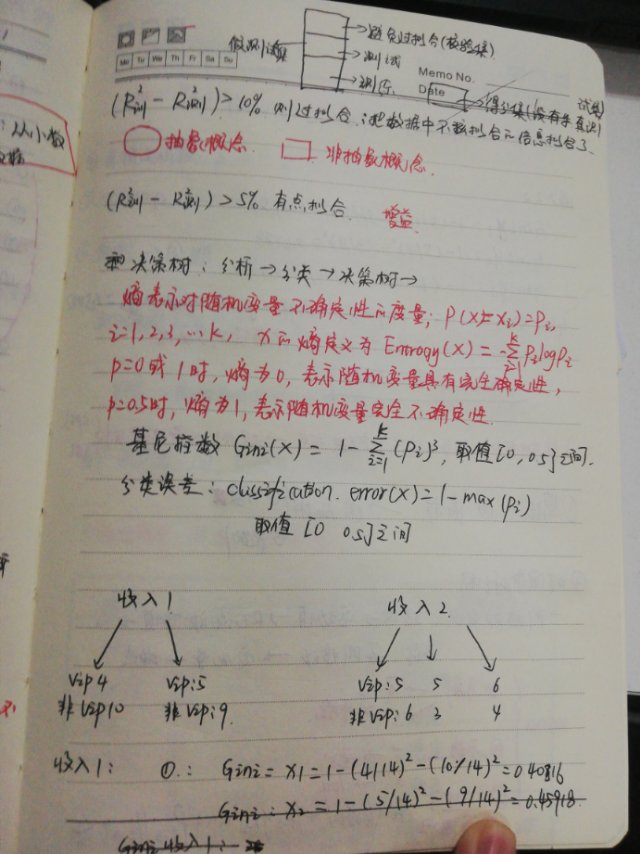 假测试集
避免过拟合(校验集)
测试
Mo Tu We Th Fr Sa Su
Memo No.
Date
得分集(没有参
(R²训 - R²测) > 10% 则过拟合：把数据中不该拟合的信息拟合了.
抽象概念 非抽象概念.
(R²训 - R²测) > 5% 有点拟合. 增益.
决策树：分析→分类→决策树→
熵表示对随机变量不确定性的度量; P(X=xi)=pi,
i=1,2,3,…k, x的熵定义为 Entrogy(X) = -∑pilogpi
p=0或1时, 熵为0, 表示随机变量具有完全确定性,
p=0.5时, 熵为1, 表示随机变量完全不确定性.
基尼指数 Gini(X) = 1 - ∑(pi)², 取值[0,0.5]之间.
分类误差: classification.error(X)=1-max(pi)
取值 [0 0.5]之间
收入1 收入2
Vip4 Vip:5 Vip:5 5 6
非Vip10 非Vip:9 非Vip:6 3 4
收入1: ①.: Gini= X1=1-(4/14)²-(10/14)²=0.40816
Gini: X2 = 1-(5/14)²-(9/14)²=0.45918.
Gini 收入1:
从小数